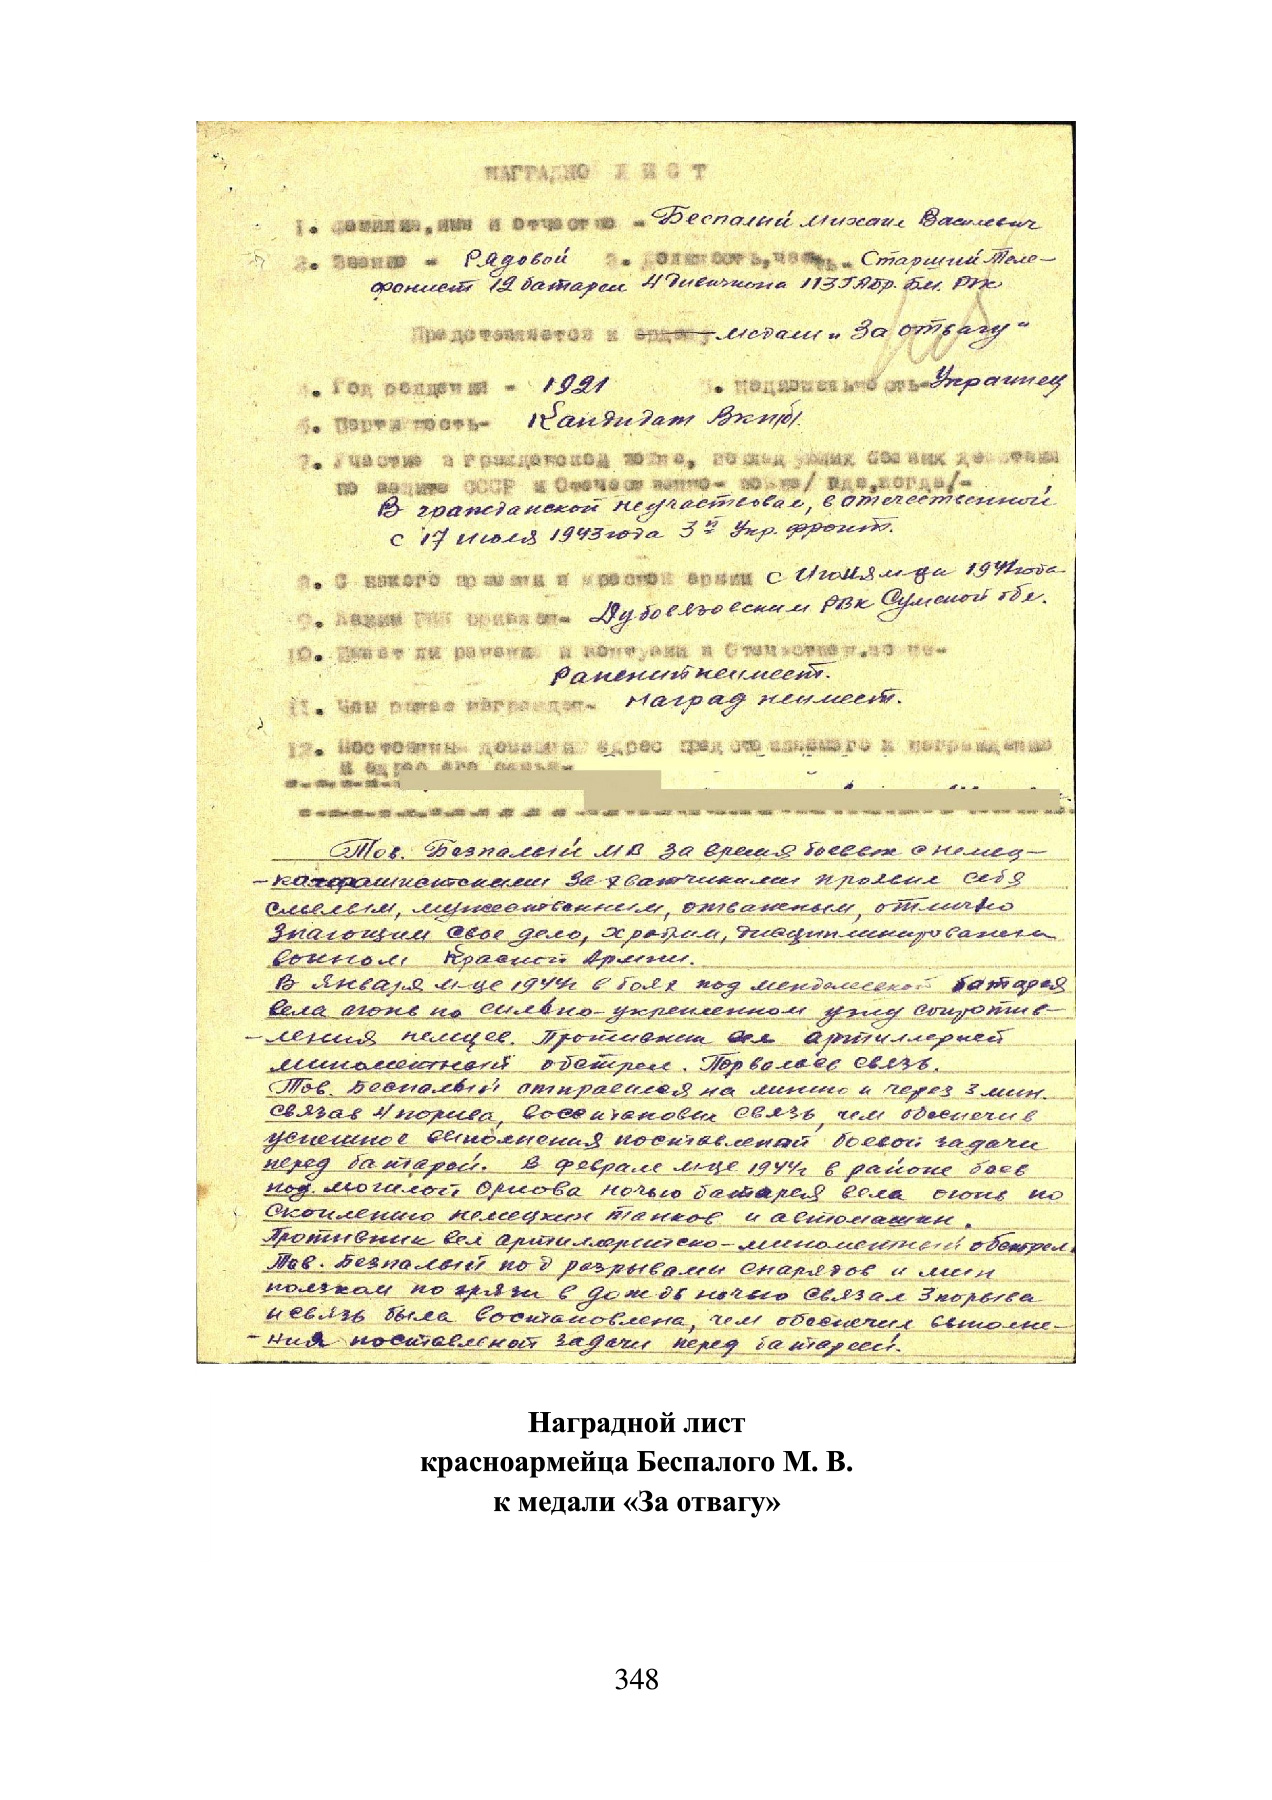 НАГРАДНО Л И С Т
1. Фамилия, имя и отчество - Беспалый Михаил Васильевич
2. Звание - Рядовой 3. Должность, часть - Старший Теле-
фонист 12 батареи 4 Дивизиона 113 ГАбр. бм. РГК
Представляется к ордену медали „За отвагу"
4. Год рождения - 1921 5. Национальность - Украинец
6. Партийность - Кандидат ВКП(б).
7. Участие в гражданской войне, последующих боевых действиях
по защите СССР и Отечественно- войне/ где, когда/-
В гражданской неучаствовал, в отечественной
с 17 июля 1943 года 3й Укр. фронт.
8. С какого времени в красной армии с Июня м-ца 1941 года
9. Каким РВК призван - Дубовязовским РВК Сумской обл.
10. Имеет ли ранения и контузии в Отечествен.войне-
Ранений неимеет.
11. Чем ранее награжден- наград неимеет.
12. Постоянны домашни адрес представляемого к награждению
и адрес его семьи-
Тов. Безпалый МВ за время боевых с немец-
-ко-фашистскими захватчиками проявил себя
смелым, мужественним, отважным, отлично
знающим свое дело, храбрим, дисциплинированим
воином Красной Армии.
В Января м-це 1944г в боях под батарея
вела огонь по сильно-укрепленном узлу сопротив-
-ления немцев. Противник вел артиллерией
минометный обстрел. Порвалась связь.
Тов. Беспалый отправился на линию и через 3 мин.
связав 4 порива, восстановил связь, чем обеспечив
успешное выполнения поставленой боевой задачи
перед батарей. В феврале м-це 1944г в районе боев
под могилой Орлова ночью батарея вела огонь по
скоплению немецких танков и автомашин.
Противник вел артиллерийско-минометный обстрел.
Тов. Безпалый под разрывами снарядов и мин
ползком по грязи в дождь ночью связал 3 порыва
и связь была востановлена, чем обеспечил выполне-
-ния поставленой задачи перед батареей.
Наградной лист
красноармейца Беспалого М. В.
к медали «За отвагу»
348